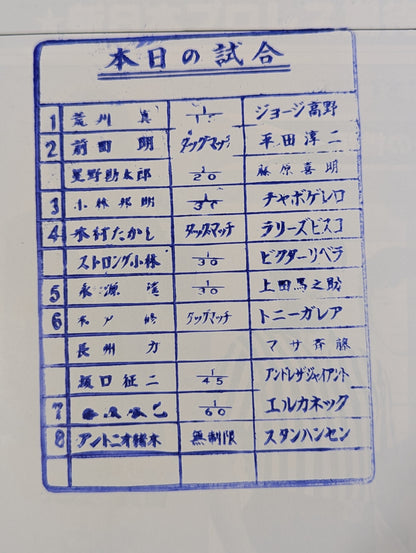 本日の試合
1 荒川真 1/15 ジョージ高野
2 前田明 タッグマッチ 平田淳二
星野勘太郎 1/20 藤原喜明
3 小林邦明 1/30 チャボゲレロ
4 木村たかし タッグマッチ ラリーズビスコ
ストロング小林 1/30 ビクターリベラ
5 永源遥 1/30 上田馬之助
6 木戸修 タッグマッチ トニーガレア
長州力 マサ斉藤
坂口征二 1/45 アンドレザジャイアント
7 1/60 エルカネック
8 アントニオ猪木 無制限 スタンハンセン